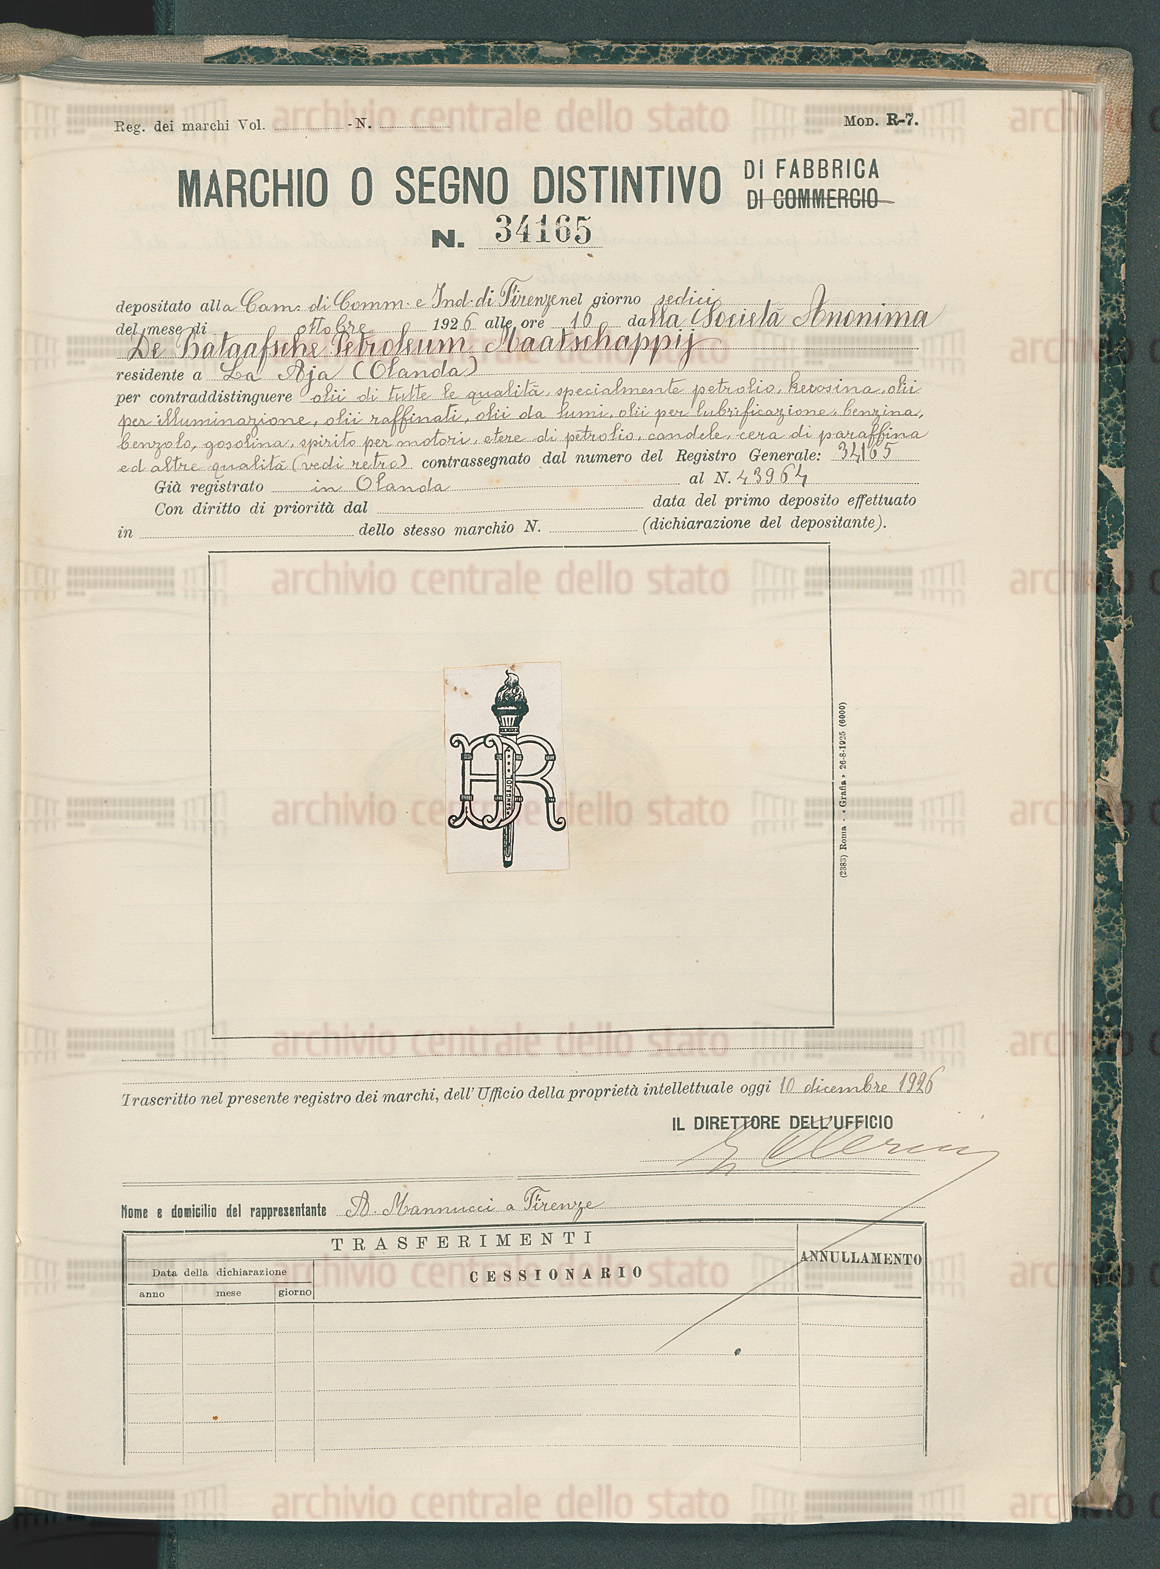 Reg. dei marchi Vol. - N.
MOD. R-7.
MARCHIO O SEGNO DISTINTIVO DI FABBRICA
DI COMMERCIO
N. 34165
depositato alla Cam. di Comm. e Ind. di Firenze nel giorno sedici
del mese di ottobre 1926 alle ore 16 dalla Società Anonima
De Bataafsche Petroleum Maatschappij
residente a La Aja (Olanda)
per contraddistinguere olii di tutte le qualità, specialmente petrolio, kerosina, olii
per illuminazione, olii raffinati, olii da lumi, olii per lubrificazione, benzina,
benzolo, gosolina, spirito per motori, etere di petrolio, candele, cera di paraffina
ed altre qualità (vedi retro) contrassegnato dal numero del Registro Generale: 34165
Già registrato in Olanda al N. 43964
Con diritto di priorità dal data del primo deposito effettuato
in dello stesso marchio N. (dichiarazione del depositante).
(2383) Roma - «Grafia» 26-8-1925 (6000)
Trascritto nel presente registro dei marchi, dell'Ufficio della proprietà intellettuale oggi 10 dicembre 1926
IL DIRETTORE DELL'UFFICIO
Nome e domicilio del rappresentante A. Mannucci a Firenze
TRASFERIMENTI
ANNULLAMENTO
Data della dichiarazione
CESSIONARIO
anno mese giorno
archivio centrale dello stato
archivio centrale dello stato
archivio centrale dello stato
archivio centrale dello stato
archivio centrale dello stato
archivio centrale dello stato
archivio centrale dello stato